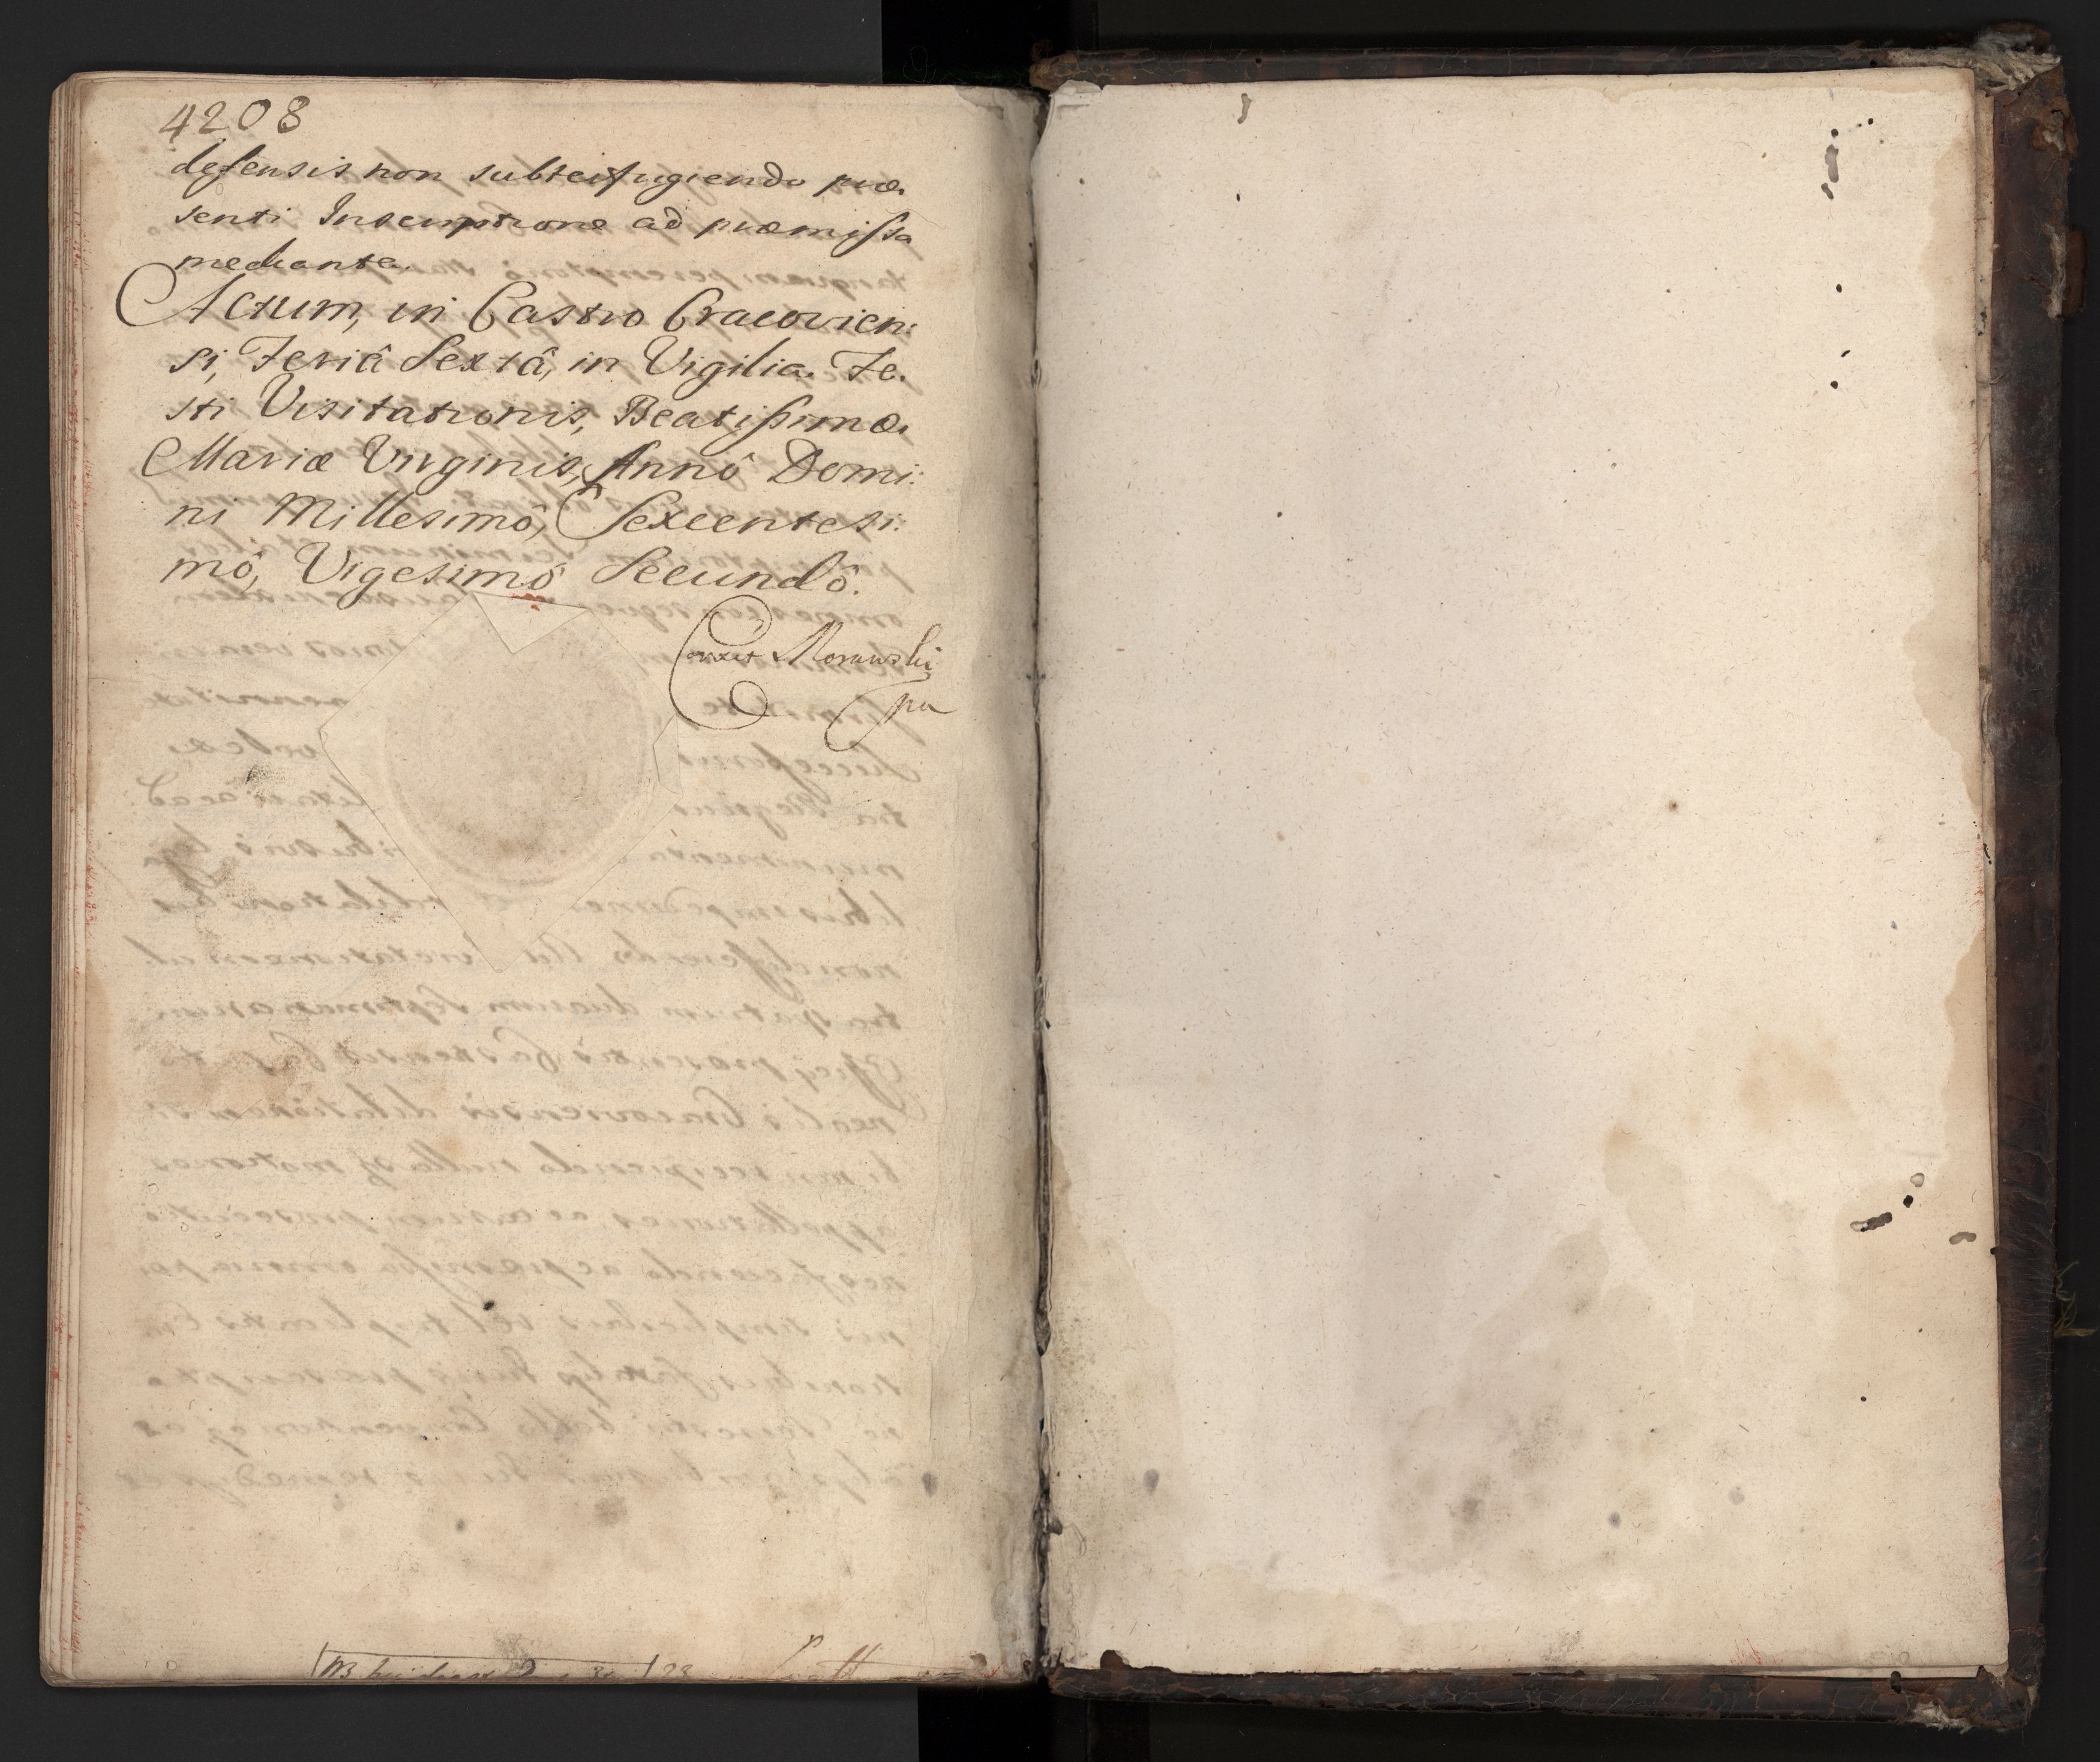 4208
defensis non subterfugiendo præ.
senti Inscriptione ad præmissa
mediante.
Actum, in Castro Cracovien:
si, Feriâ Sextâ, in Vigilia Fe.
sti Visitationis, Beatissimæ
Mariæ Virginis, Annô Domi:
ni Millesimô, Sexcentesi:
mô, Vigesimô Secundô.
Correxit Morawski